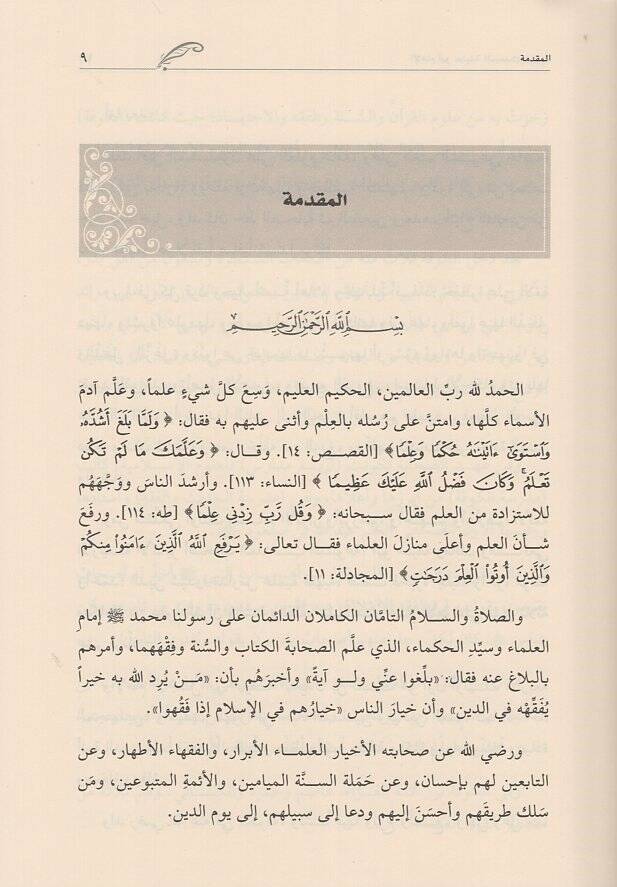 المقدمة ٩
المقدمة
بِسْمِ اللَّهِ الرَّحْمَٰنِ الرَّحِيمِ
الحمدُ لله ربِّ العالمين، الحكيم العليم، وَسِعَ كلَّ شيءٍ علماً، وعَلَّم آدمَ
الأسماء كلَّها، وامتنَّ على رُسُله بالعِلْم وأثنى عليهم به فقال: ﴿ وَلَمَّا بَلَغَ أَشُدَّهُۥ
وَٱسْتَوَىٰٓ ءَاتَيْنَٰهُ حُكْمًا وَعِلْمًا﴾ [القصص: ١٤]. وقال: ﴿ وَعَلَّمَكَ مَا لَمْ تَكُن
تَعْلَمُ ۚ وَكَانَ فَضْلُ ٱللَّهِ عَلَيْكَ عَظِيمًا ﴾ [النساء: ١١٣]. وأرشدَ الناسَ ووَجَّهَهُم
للاستزادة من العلم فقال سبحانه: ﴿ وَقُل رَّبِّ زِدْنِي عِلْمًا﴾ [طه: ١١٤]. ورفَعَ
شأنَ العلم وأعلَى منازلَ العلماء فقال تعالى: ﴿ يَرْفَعِ ٱللَّهُ ٱلَّذِينَ ءَامَنُوا۟ مِنكُمْ
وَٱلَّذِينَ أُوتُوا۟ ٱلْعِلْمَ دَرَجَٰتٍ﴾ [المجادلة: ١١].
والصلاةُ والسلامُ التامَّان الكاملان الدائمان على رسولنا محمد ﷺ إمامِ
العلماء وسيِّدِ الحكماء، الذي علَّم الصحابةَ الكتاب والسُّنة وفِقْهَهما، وأمرهم
بالبلاغ عنه فقال: «بلِّغوا عنِّي ولو آيةً» وأخبرَهُم بأن: «مَنْ يُرِد الله به خيراً
يُفَقِّهْه في الدين» وأن خيارَ الناس «خيارُهم في الإسلام إذا فَقُهوا».
ورضي الله عن صحابته الأخيار العلماء الأبرار، والفقهاء الأطهار، وعن
التابعين لهم بإحسان، وعن حَمَلة السنَّة الميامين، والأئمةِ المتبوعين، ومَن
سَلك طريقَهم وأحسَنَ إليهم ودعا إلى سبيلهم، إلى يوم الدين.